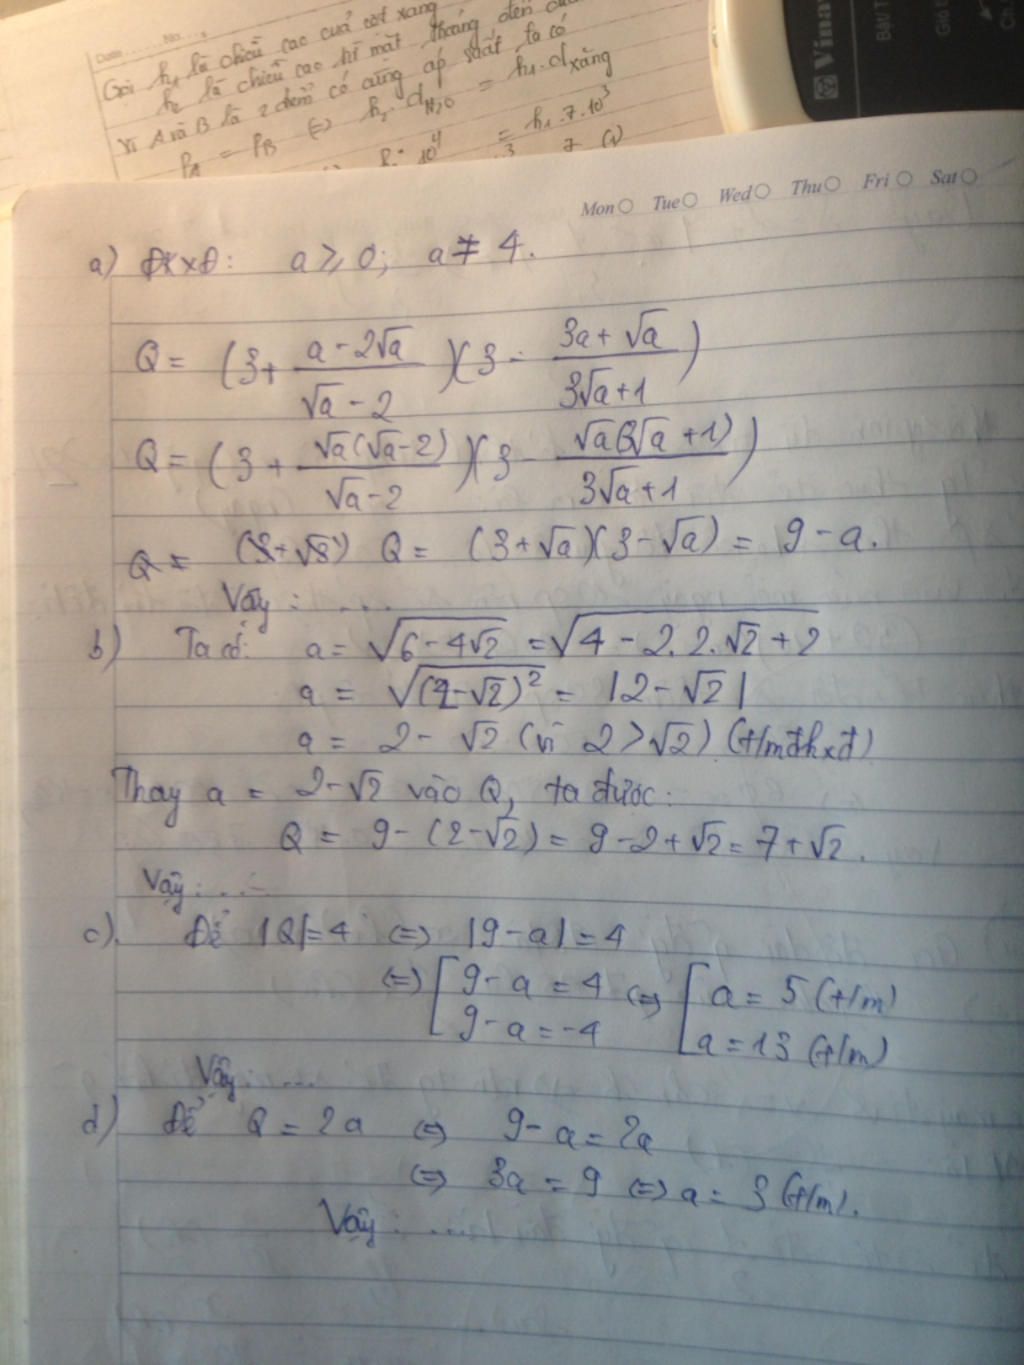 Date No
Gọi h₁ là chiều cao của cột xăng
h₂ là chiều cao từ mặt thoáng đến
Vì A và B là 2 điểm có cùng áp suất ta có
P_A = P_B ⇔ h₂.d_H₂O = h₁.d_xăng
10⁴ = h₁.7.10³
Vina
Mon Tue Wed Thu Fri Sat
a) ĐKXĐ: a ≥ 0; a ≠ 4.
Q = (3 + (a - 2√a)/(√a - 2))(3 - (3a + √a)/(3√a + 1))
Q = (3 + √a(√a - 2)/(√a - 2))(3 - √a(3√a + 1)/(3√a + 1))
Q = (3 + √3) Q = (3 + √a)(3 - √a) = 9 - a.
Vậy: ....
b) Ta có: a = √(6 - 4√2) = √(4 - 2.2.√2 + 2)
a = √((2 - √2)²) = |2 - √2|
a = 2 - √2 (vì 2 > √2) (t/m đkxđ)
Thay a = 2 - √2 vào Q, ta được:
Q = 9 - (2 - √2) = 9 - 2 + √2 = 7 + √2.
Vậy: ...
c). Để |Q| = 4 ⇔ |9 - a| = 4
⇔ [ 9 - a = 4 ⇔ [ a = 5 (t/m)
9 - a = -4 a = 13 (t/m)
Vậy: ....
d) Để Q = 2a ⇔ 9 - a = 2a
⇔ 3a = 9 ⇔ a = 3 (t/m).
Vậy: ......